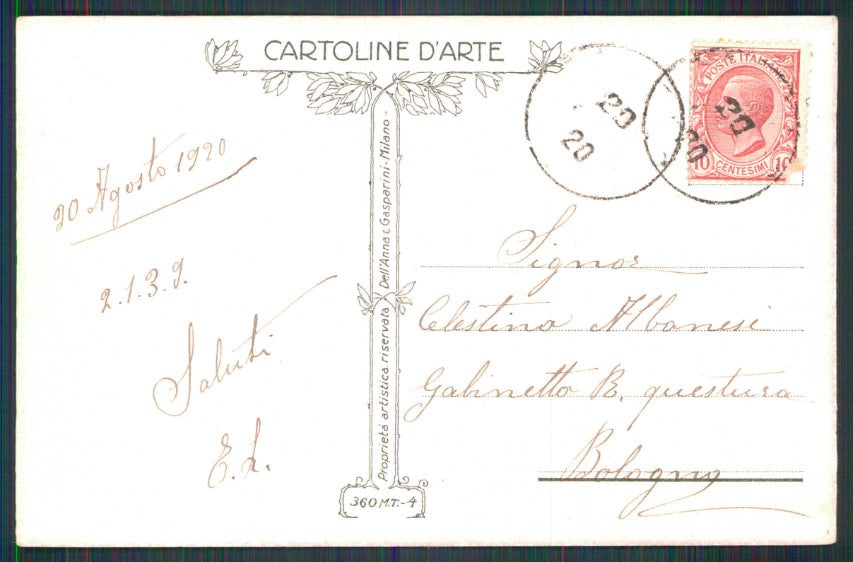 CARTOLINE D'ARTE
POSTE ITAL
10 CENTESIMI 10
20
20
20
20
20 Agosto 1920
2.1.3.9.
Saluti
E. L.
Proprietà artistica riservata Dell'Anna e Gasparini - Milano -
360 M.T. - 4
Signor
Celestino Albanesi
Gabinetto R. questura
Bologna